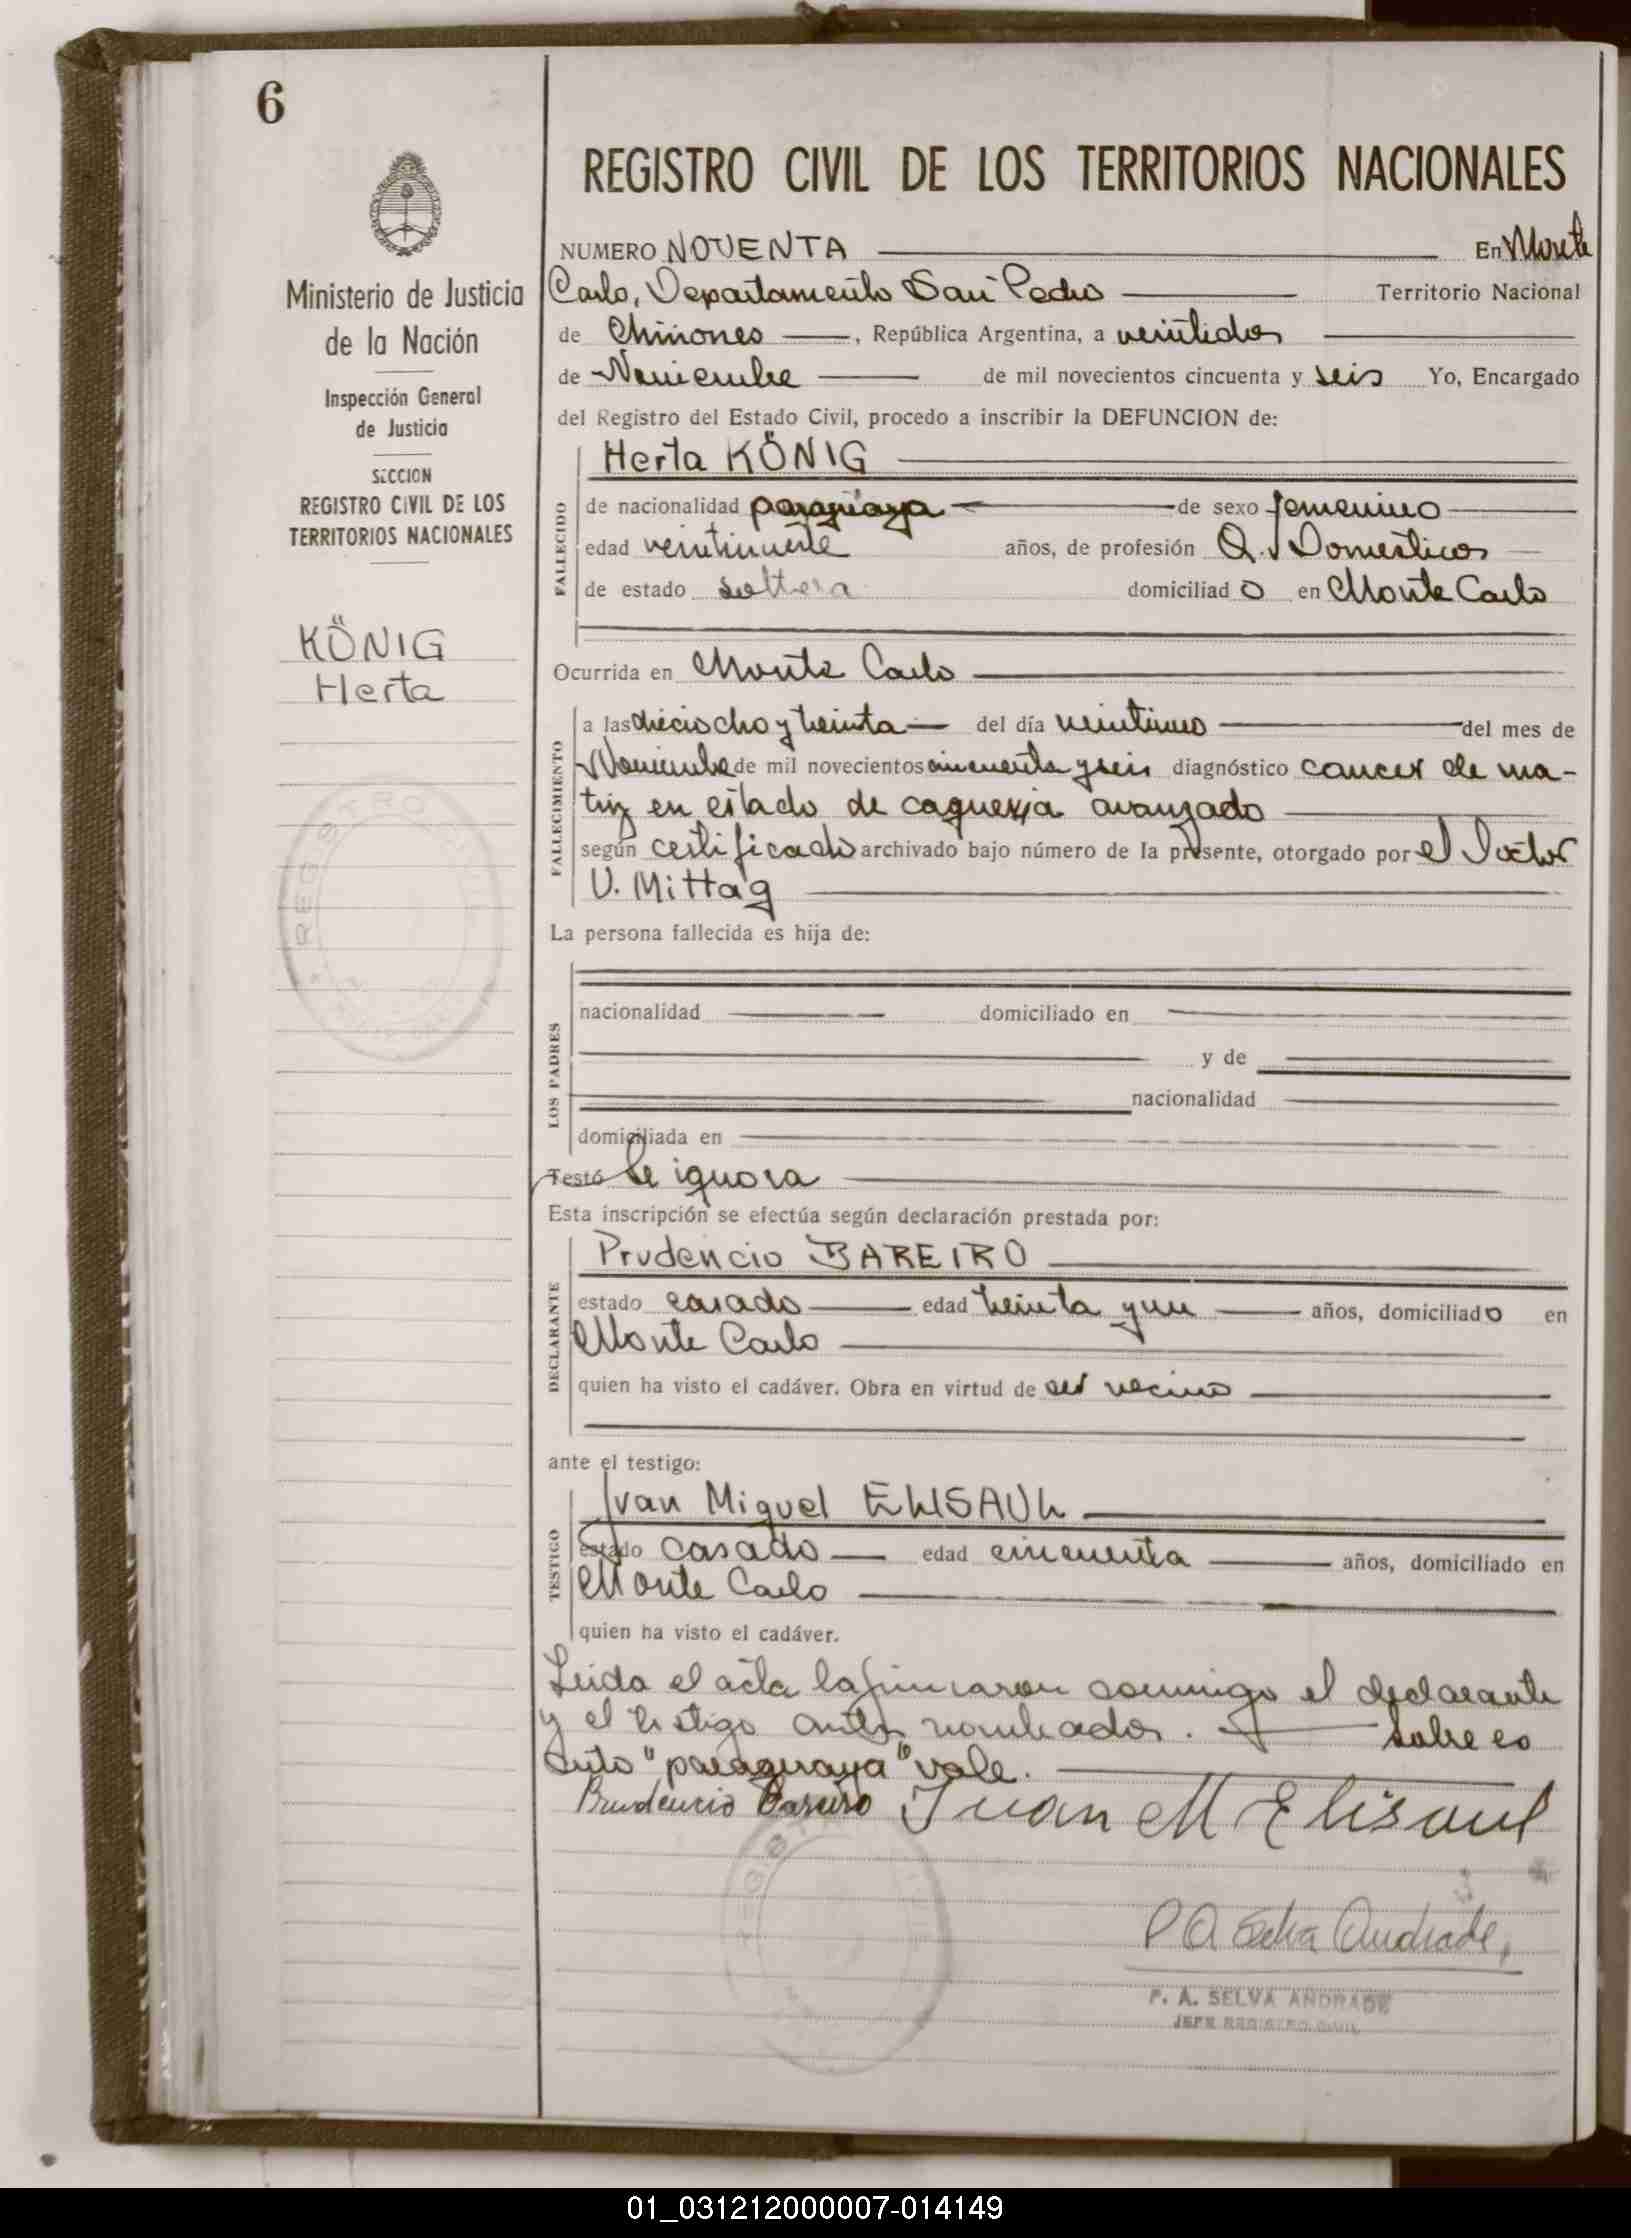 6
Ministerio de Justicia
de la Nación
Inspección General
de Justicia
SECCION
REGISTRO CIVIL DE LOS
TERRITORIOS NACIONALES
KÖNIG
Herta
REGISTRO CIVIL DE LOS TERRITORIOS NACIONALES
NUMERO NOVENTA En Monte
Carlo, Departamento San Pedro Territorio Nacional
de Misiones, República Argentina, a veintidos
de Noviembre de mil novecientos cincuenta y seis Yo, Encargado
del Registro del Estado Civil, procedo a inscribir la DEFUNCION de:
FALLECIDO
Herta KÖNIG
de nacionalidad paraguaya de sexo femenino
edad veintinueve años, de profesión Q. Domesticos
de estado soltera domiciliado en Monte Carlo
Ocurrida en Monte Carlo
FALLECIMIENTO
a las dieciocho y treinta del día veintiuno del mes de
Noviembre de mil novecientos cincuenta y seis diagnóstico cancer de ma-
triz en estado de caquexia avanzado
según certificado archivado bajo número de la presente, otorgado por el Doctor
U. Mittag
La persona fallecida es hija de:
LOS PADRES
nacionalidad domiciliado en
y de
nacionalidad
domiciliada en
Testó Se ignora
Esta inscripción se efectúa según declaración prestada por:
DECLARANTE
Prudencio BAREIRO
estado casado edad treinta y un años, domiciliado en
Monte Carlo
quien ha visto el cadáver. Obra en virtud de ser vecino
ante el testigo:
TESTIGO
Juan Miguel ELISAUL
estado casado edad cincuenta años, domiciliado en
Monte Carlo
quien ha visto el cadáver.
Leida el acta la firmaron conmigo el declarante
y el testigo antes nombrados. Sobre es
crito "paraguaya" vale.
Prudencio Bareiro Juan M Elisaul
P A Selva Andrade
P. A. SELVA ANDRADE
JEFE REGISTRO CIVIL
01_031212000007-014149